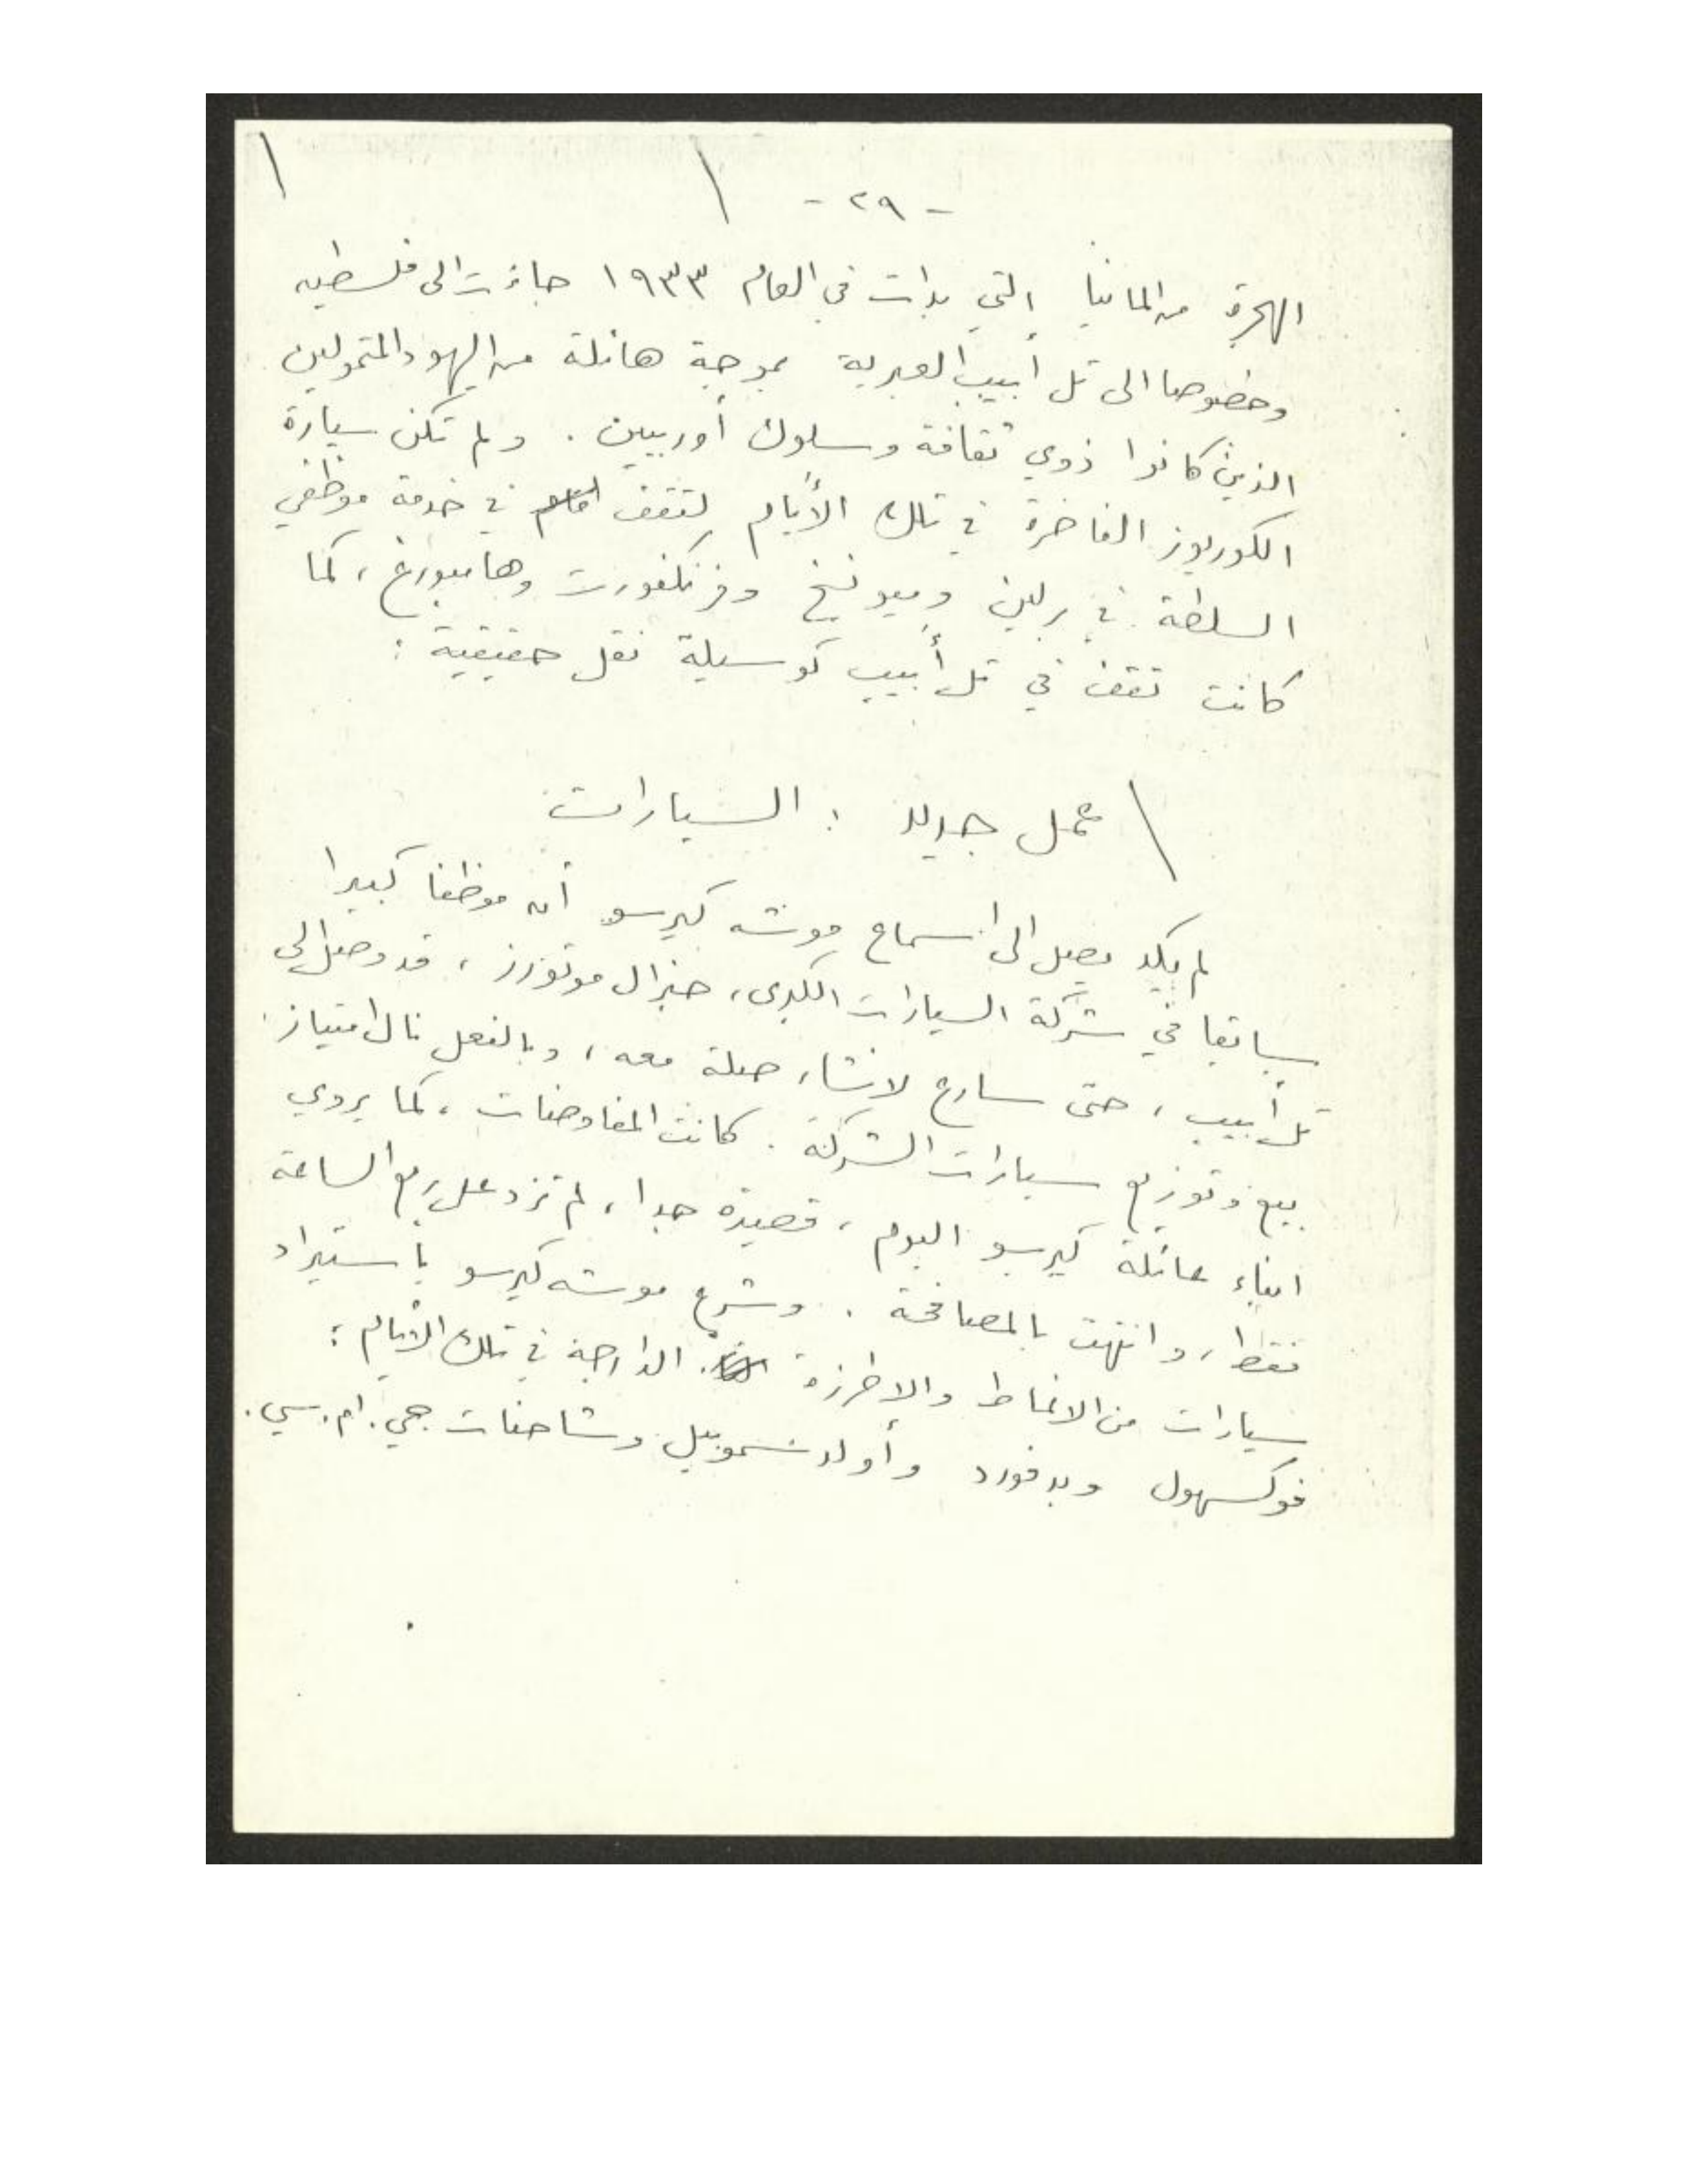 - ٢٩ -
الهجرة من المانيا التي بدات في العام ١٩٣٣ جاءت الى فلسطين
وخصوصا الى تل أبيب العبرية بموجة هائلة من اليهود المتمولين
الذين كانوا ذوي ثقافة وسلوك أوربيين . ولم تكن سيارة
الكوريوز الفاخرة في تلك الأيام لتقف في خدمة موظفي
السلطة في برلين وميونخ وفرنكفورت وهامبورغ ، كما
كانت تقف في تل أبيب كوسيلة نقل حقيقية :
عمل جديد : السيارات
لم يكد يصل الى اسماع موشه كيرسو أن موظفا كبيرا
سابقا في شركة السيارات الكبرى ، جنرال موتورز ، قد وصل الى
تل أبيب ، حتى سارع لانشاء صلة معه ، وبالفعل نال امتياز
بيع وتوزيع سيارات الشركة . كانت المفاوضات ، كما يروي
ابناء عائلة كيرسو اليوم ، قصيرة جدا ، لم تزد على ربع الساعة
فقط ، وانتهت بالمصافحة . وشرع موشه كيرسو باستيراد
سيارات من الانماط والاطرزة الدارجة في تلك الأيام :
فوكسهول وبدفورد وأولدسموبيل وشاحنات جي . ام . سي .